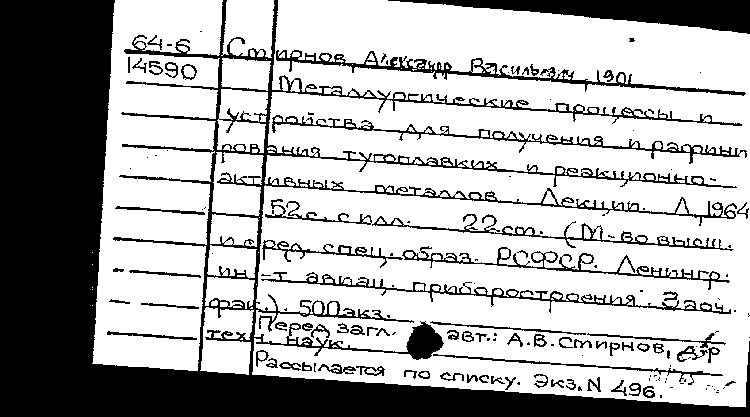 64-6 Смирнов, Александр Васильевич, 1901
14590 Металлургические процессы и
устройства для получения и рафини
рования тугоплавких и реакционно-
активных металлов. Лекции. Л, 1964
52 с. с илл. 22 см. (М-во высш.
и сред. спец. образ. РСФСР. Ленингр.
ин-т авиац. приборостроения. Заоч.
фак.). 500 экз.
Перед загл. авт.: А.В. Смирнов, д-р
техн. наук.
Рассылается по списку. Экз. N 496.